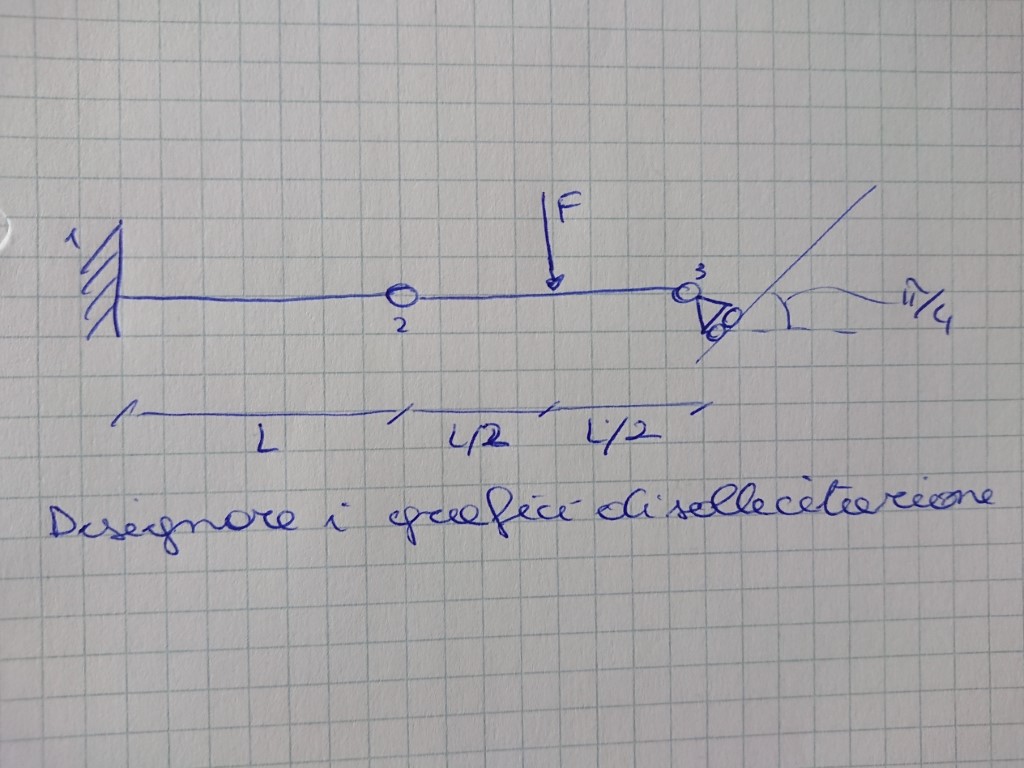 1
F
3
2
π/4
L
L/2
L/2
Disegnare i grafici di sollecitazione